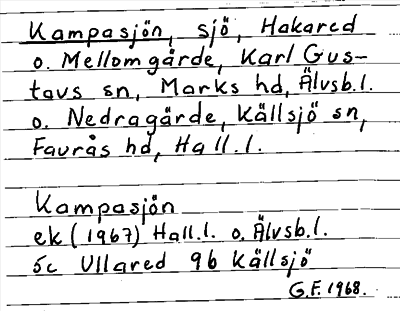 Kampasjön, sjö, Hakared
o. Mellomgärde, Karl Gus-
tavs sn, Marks hd, Älvsb.l.
o. Nedragärde, Källsjö sn,
Faurås hd, Hall.l.
Kampasjön
ek (1967) Hall.l. o. Älvsb.l.
5c Ullared 9b Källsjö
G.F. 1968.